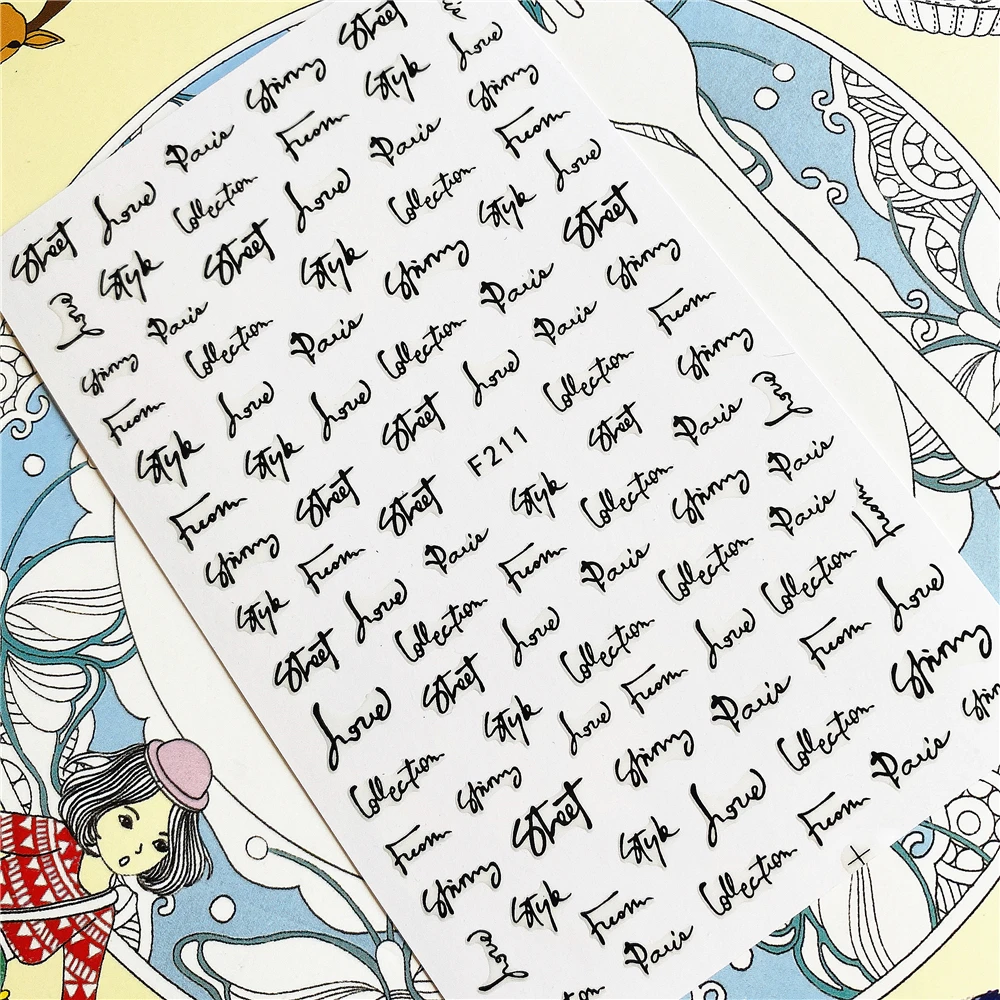 Street Love Paris Street
Style Collection From Style Love
Love Street Love Paris
Paris Style Collection From
Collection Style Love
From Love Paris Collection Paris Street
Style Style Love Street Love Paris
From Street F211 Collection From
From Street Style Street
Style Love Paris Collection Paris Love
Street Collection From Paris Paris
Street Love Collection Paris From
Love Style Collection From Love Collection
Collection Love Paris From Love
From Street Collection
Style Style Love Paris
Love From From
Paris Collection